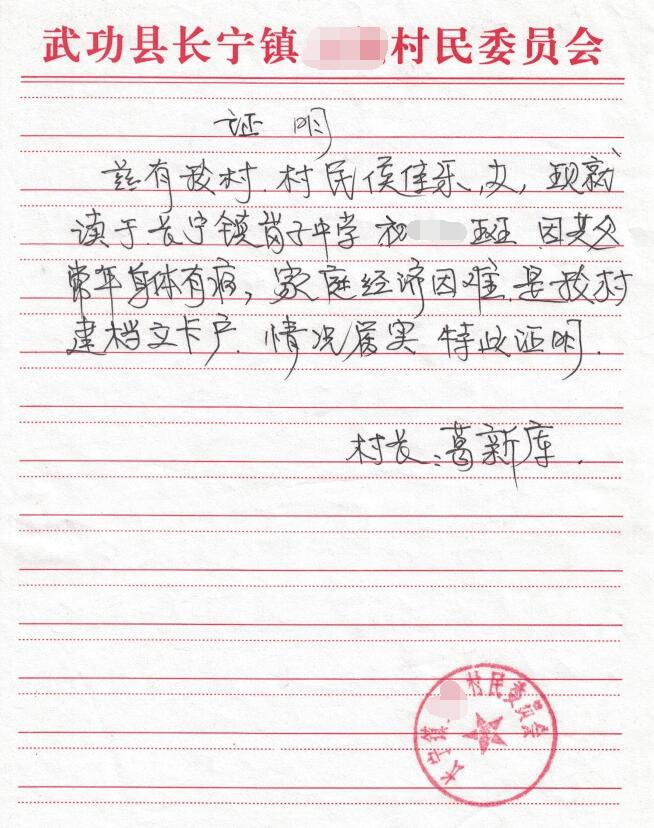 武功县长宁镇 村民委员会
证明
兹有我村.村民侯佳乐,女,现就
读于长宁镇岗子中学初 班 因其父
常年身体有病,家庭经济困难.是我村
建档立卡户.情况属实 特此证明.
村长:葛新库.
长宁镇 村民委员会